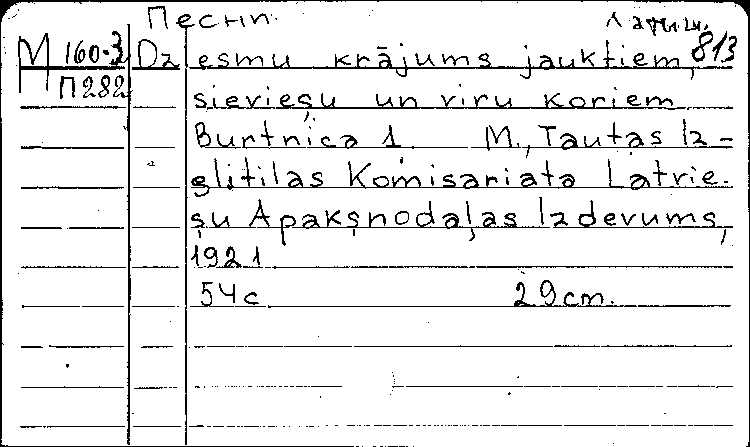 Песни.
М 160-3 Dz esmu krājums jauktiem, 813
П282 sieviešu un viru koriem
Burtnica 1. M., Tautas Iz-
glitilas Komisariata Latvie-
şu Apakşnodaļas Izdevums,
1921
54с 29cm.